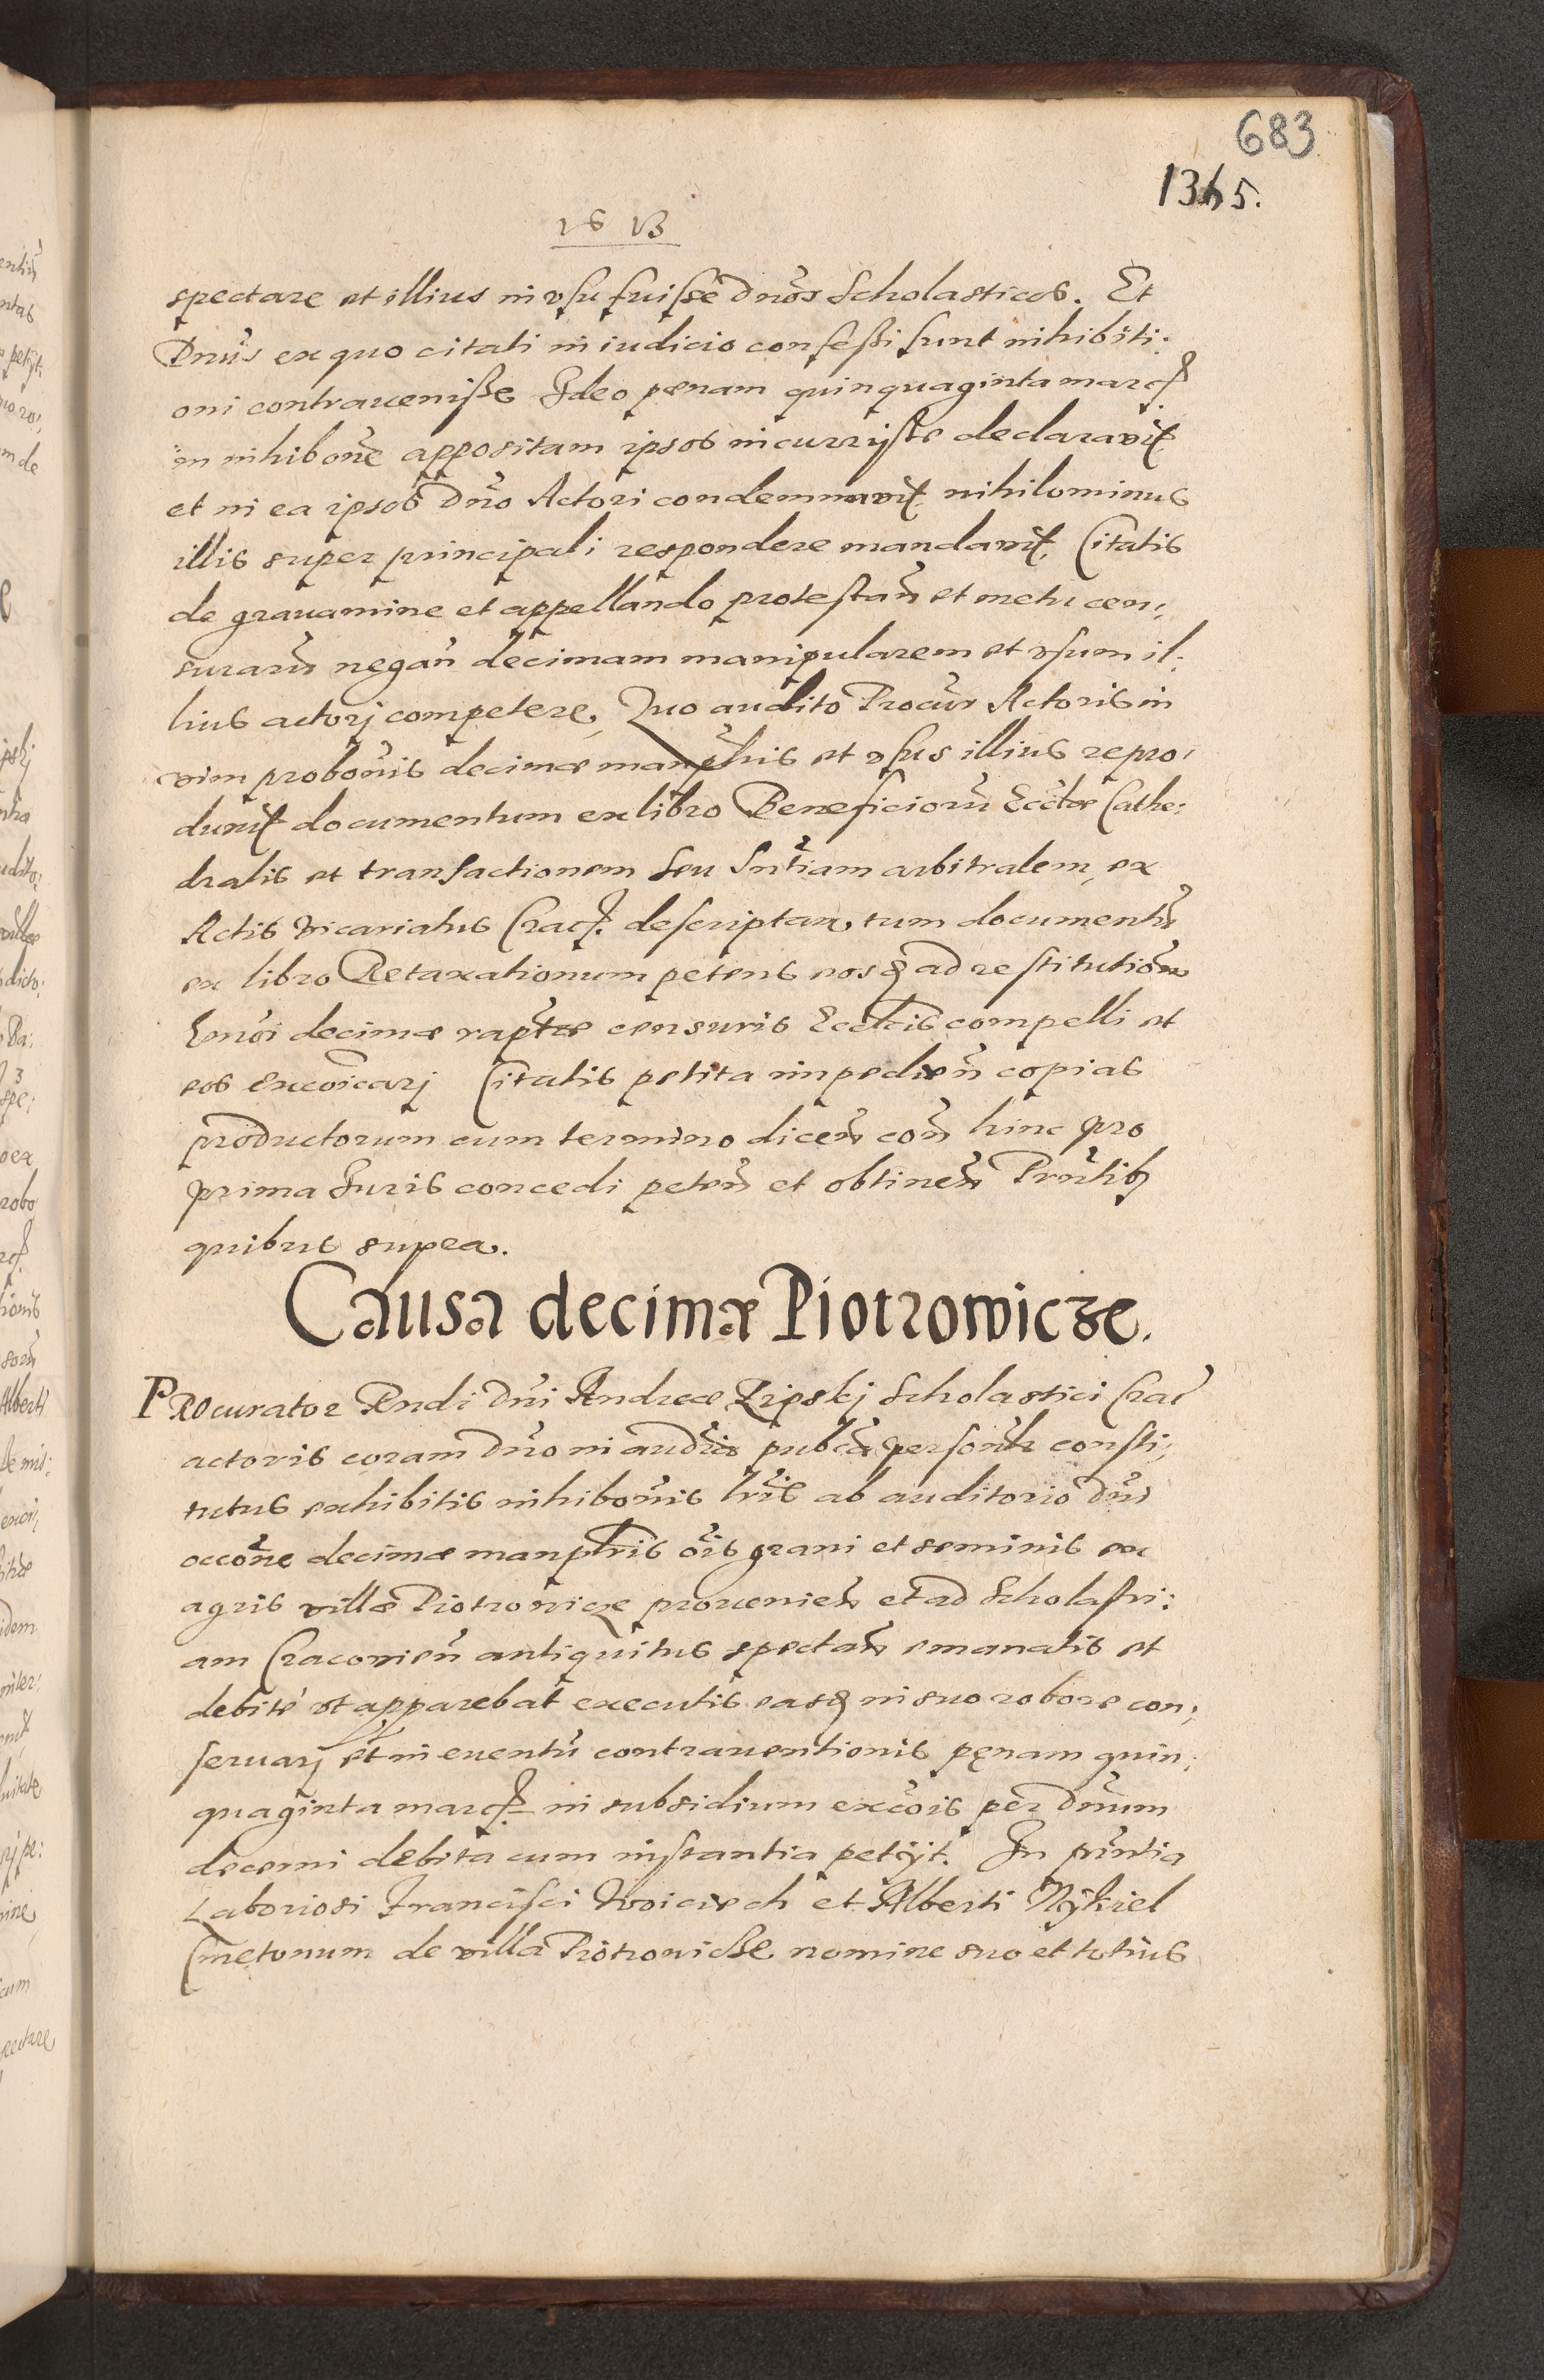 683
1365.
16 13
spectare et illius in vsu fuisse Dnos Scholasticos. Et
Dnus ex quo citati in iudicio confessi sunt inhibiti:
oni contrauenisse Ideo penam quinquaginta marcꝭ
in inhibone appositam ipsos incurrisse declarauit
et in ea ipsos Dno Actori condemnauit nihilominus
illis super principali respondere mandauit, Citatis
de grauamine et appellando protestan et metu cen;
surarũ negan decimam manipularem et vsum il:
lius actorj competere, Quo audito Procur Actoris in
vim probonis decimæ manplris et vsus illius repro,
duxit documentum ex libro Beneficiorũ Ecctæ Cathe:
dralis et transactionem seu Sntiam arbitralem, ex
Actis Vicariatus Cracꝭ. descriptam, tum documentũ
ex libro Retaxationum petens eosqꝫ ad restitution
hmoi decimæ raptæ censuris Ecclcis compelli et
eos excoicarj Citatis petita impedien copias
productorum cum termino dicen con hinc pro
prima Juris concedi peten et obtinen Prntibꝫ
quibus supea.
Causa decimæ Piotrowicze.
PROcurator Rndi Dni Andreæ Lipskj Scholastici Crac
actoris coram Dno in audia publca personlr consti;
tutus exhibitis inhibonis lris ab auditorio Dni
occone decimæ manplris ois grani et seminis ex
agris villæ Piotrowicze prouenien et ad Scholastri:
am Cracouien antiquitus spectan emanatis et
debite vt apparebat executis easqꝫ in suo robore con;
seruarj et in euentũ contrauentionis pęnam quin;
quaginta marcꝭ. in subsidium excois per Dnum
decerni debita cum instantia petijt. In prntia
Laboriosi Francisci Woiciech et Alberti Nykiel
Cmetonum de villa Piotrowicze nomine suo et totius